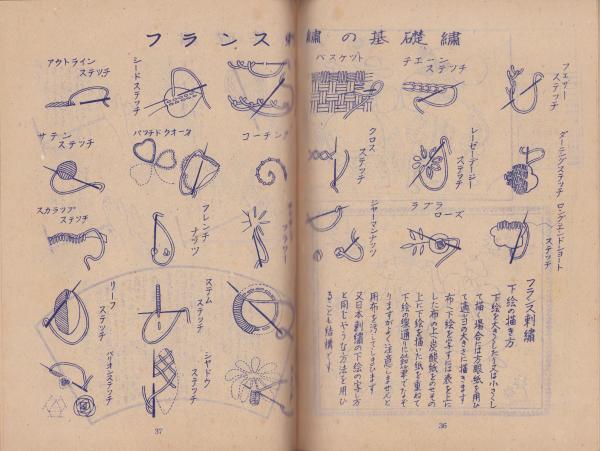 フランス刺繍の基礎繍
フェザー
ステッチ
チエーン
ステッチ
バスケット
ダーニングステッチ
レーゼーデージー
ステッチ
クロス
ステッチ
ロングエンドショート
ステッチ
ラブラ
ローズ
ジャーマンナッツ
フランス刺繍
下絵の描き方
下絵を大きくしたり又は小さくし
て描く場合には方眼紙を用ひ
て適当の大きさに描きます
布に下絵を写すには表を上に
した布の上に炭酸紙をのせその
上に下絵を描いた紙を重ねて
下絵の線通りに鉛筆でなぞ
りますがよく注意しませんと
用布を汚してしまひます
又日本刺繍の下絵の写し方
と同じやうな方法を用ひ
ることも結構です
36
シードステッチ
アウトライン
ステッチ
コーチング
パツチドウオーク
サテン
ステッチ
フラワー
フレンチ
ナッツ
スカラツプ
ステッチ
ステム
ステッチ
リーフ
ステッチ
シヤドウ
ステッチ
ベリオンステッチ
37